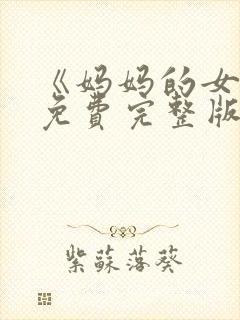 《妈妈的女
免費完整版
紫蘇落葵